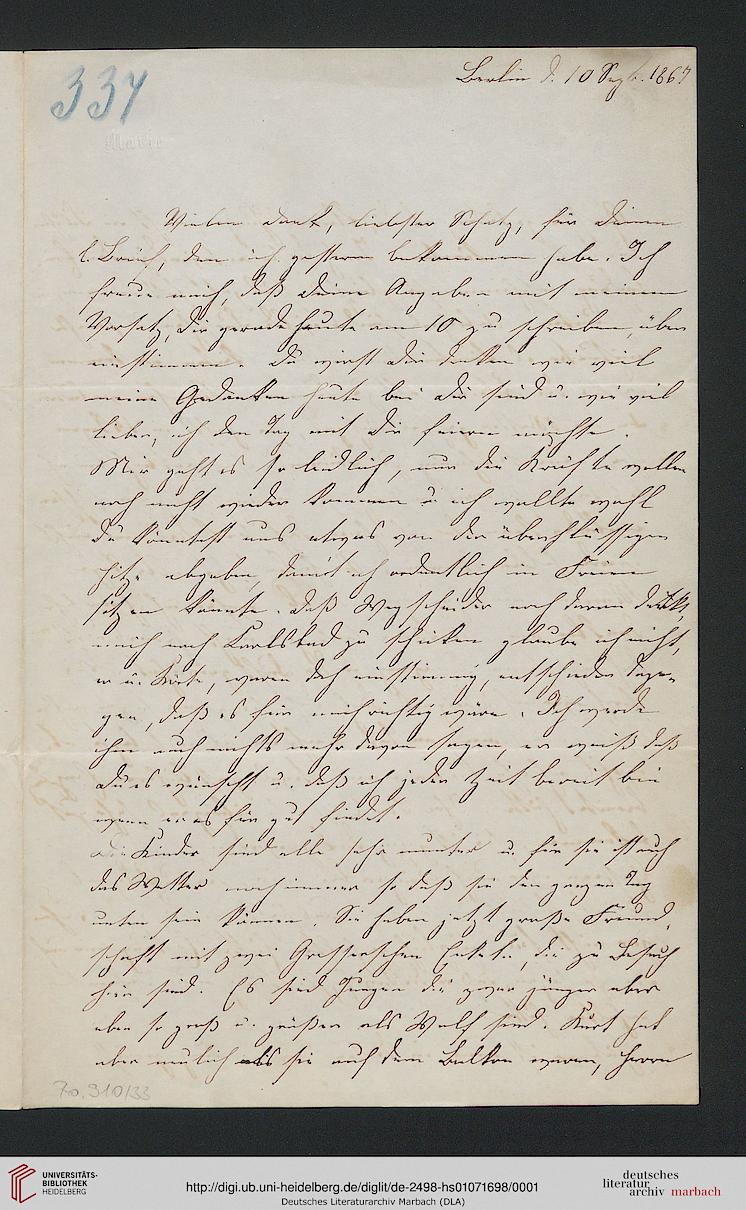 334
Berlin d. 10 Sept. 1867
Marie
Vielen Dank, liebster Schatz, für Deinen
l. Brief, den ich gestern bekommen habe. Ich
freue mich, daß Deine Angaben mit meinem
Vorsatz, Dir gerade heute am 10 zu schreiben, über
einstimmen. Du wirst Dir denken wie viel
meine Gedanken heute bei Dir sind u. wie viel
lieber, ich den Tag mit Dir feiern möchte.
Mir geht es so leidlich, nur die Kräfte wollen
noch nicht wieder kommen u ich wollte wohl
Du könntest uns etwas von der überflüssigen
Hitze abgeben, damit ich ordentlich im Freien
sitzen könnte. Daß Wegscheider noch daran denkt,
mich nach Karlsbad zu schicken glaube ich nicht,
er u. waren doch einstimmig, entschieden dage-
gen, daß es für mich richtig wäre. Ich werde
ihm auch nichts mehr davon sagen, er weiß daß
Du es wünscht u. daß ich jeder Zeit bereit bin
wenn er es für gut findet.
Die Kinder sind alle sehr munter u. für sie ist auch
das Wetter noch immer so daß sie den ganzen Tag
unten sein können. Sie haben jetzt große Freund,
schaft mit zwei Enkeln, die zu Besuch
hier sind. Es sind Jungen die zwar jünger aber
eben so groß u. größer als Wolf sind. Kurt hat
aber neulich als sie auf dem Balkon waren, Herrn
70.910/33
UNIVERSITÄTS-
BIBLIOTHEK
HEIDELBERG
http://digi.ub.uni-heidelberg.de/diglit/de-2498-hs01071698/0001
Deutsches Literaturarchiv Marbach (DLA)
deutsches
literatur
archiv marbach